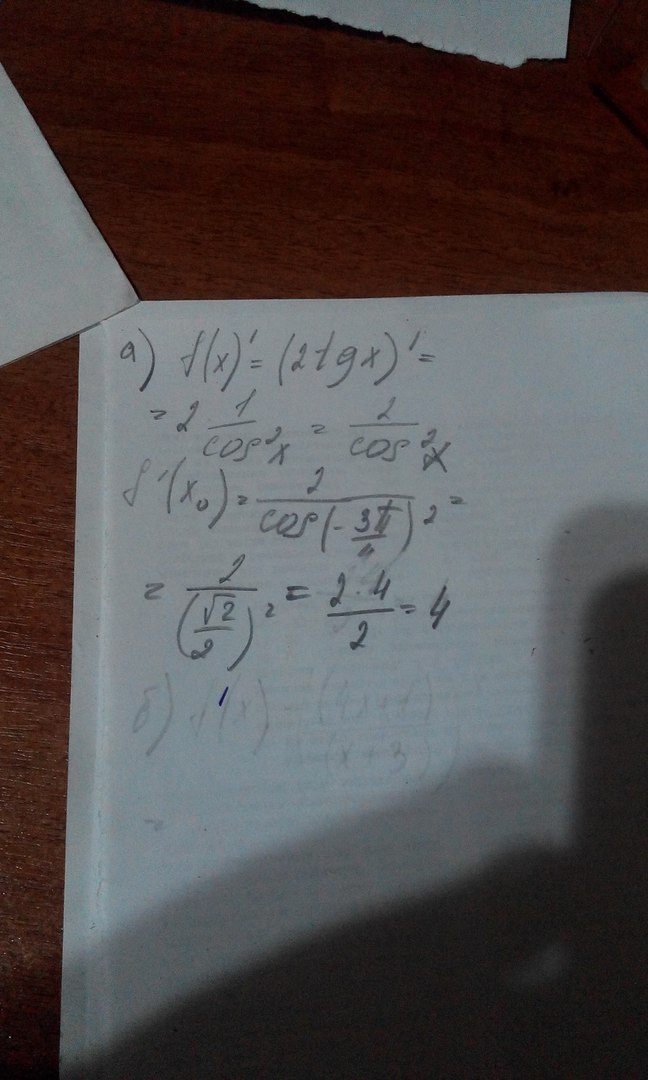 а) f(x)' = (2tgx)' =
= 2 1/cos²x = 2/cos²x
f'(x₀) = 2/cos(-3π/4)² =
= 2/(√2/2)² = 2·4/2 = 4
б) f'(x) = (4x+1)
(x+3)
=